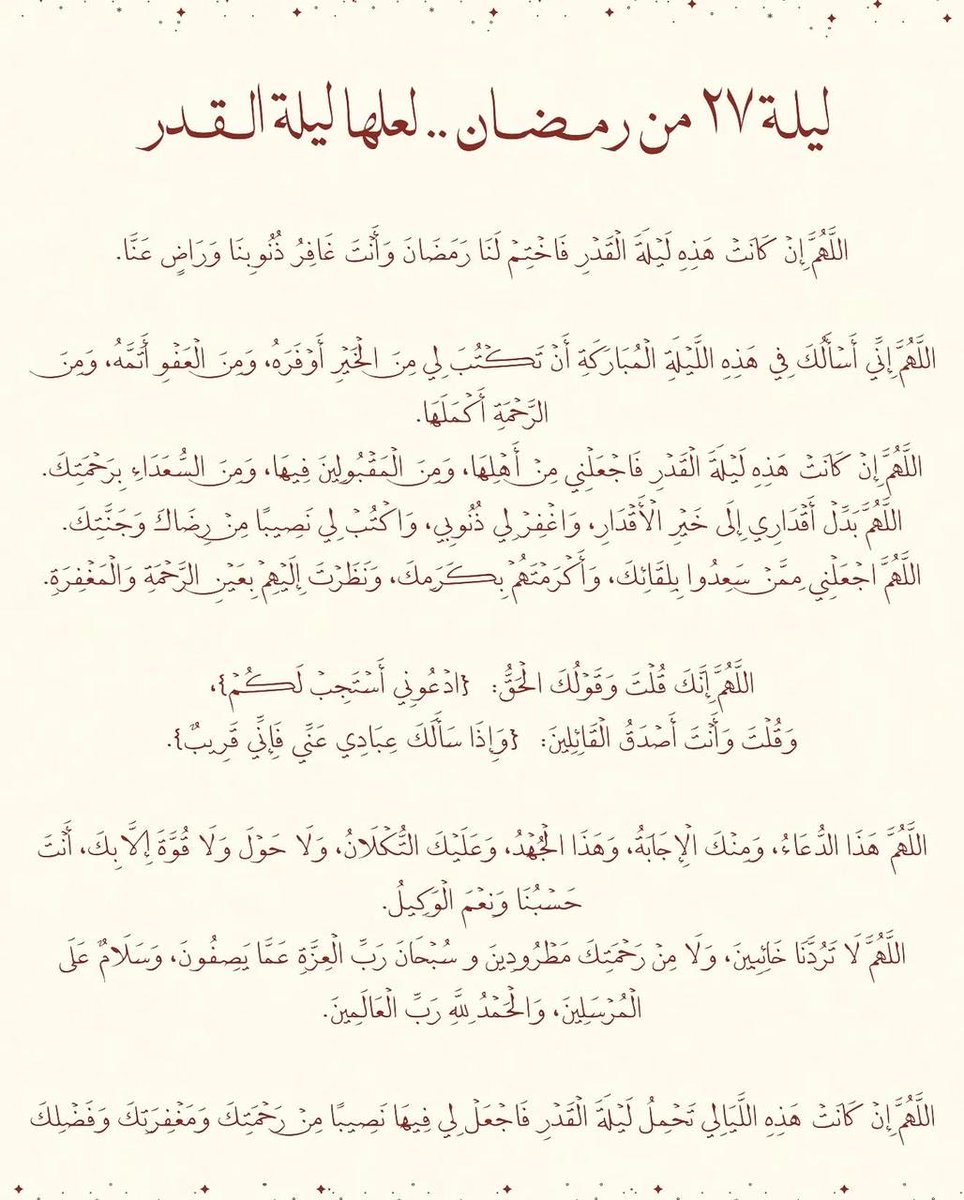 ليلة ٢٧ من رمضان .. لعلها ليلة القدر
اللَّهُمَّ إِنْ كَانَتْ هَذِهِ لَيْلَةَ الْقَدْرِ فَاخْتِمْ لَنَا رَمَضَانَ وَأَنْتَ غَافِرُ ذُنُوبِنَا وَرَاضٍ عَنَّا.
اللَّهُمَّ إِنِّي أَسْأَلُكَ فِي هَذِهِ اللَّيْلَةِ الْمُبَارَكَةِ أَنْ تَكْتُبَ لِي مِنَ الْخَيْرِ أَوْفَرَهُ، وَمِنَ الْعَفْوِ أَتَمَّهُ، وَمِنَ
الرَّحْمَةِ أَكْمَلَهَا.
اللَّهُمَّ إِنْ كَانَتْ هَذِهِ لَيْلَةَ الْقَدْرِ فَاجْعَلْنِي مِنْ أَهْلِهَا، وَمِنَ الْمَقْبُولِينَ فِيهَا، وَمِنَ السُّعَدَاءِ بِرَحْمَتِكَ.
اللَّهُمَّ بَدِّلْ أَقْدَارِي إِلَى خَيْرِ الْأَقْدَارِ، وَاغْفِرْ لِي ذُنُوبِي، وَاكْتُبْ لِي نَصِيبًا مِنْ رِضَاكَ وَجَنَّتِكَ.
اللَّهُمَّ اجْعَلْنِي مِمَّنْ سَعِدُوا بِلِقَائِكَ، وَأَكْرَمْتَهُمْ بِكَرَمِكَ، وَنَظَرْتَ إِلَيْهِمْ بِعَيْنِ الرَّحْمَةِ وَالْمَغْفِرَةِ.
اللَّهُمَّ إِنَّكَ قُلْتَ وَقَوْلُكَ الْحَقُّ: {ادْعُونِي أَسْتَجِبْ لَكُمْ}،
وَقُلْتَ وَأَنْتَ أَصْدَقُ الْقَائِلِينَ: {وَإِذَا سَأَلَكَ عِبَادِي عَنِّي فَإِنِّي قَرِيبٌ}.
اللَّهُمَّ هَذَا الدُّعَاءُ، وَمِنْكَ الْإِجَابَةُ، وَهَذَا الْجُهْدُ، وَعَلَيْكَ التُّكْلَانُ، وَلَا حَوْلَ وَلَا قُوَّةَ إِلَّا بِكَ، أَنْتَ
حَسْبُنَا وَنِعْمَ الْوَكِيلُ.
اللَّهُمَّ لَا تَرُدَّنَا خَائِبِينَ، وَلَا مِنْ رَحْمَتِكَ مَطْرُودِينَ و سُبْحَانَ رَبِّ الْعِزَّةِ عَمَّا يَصِفُونَ، وَسَلَامٌ عَلَى
الْمُرْسَلِينَ، وَالْحَمْدُ لِلَّهِ رَبِّ الْعَالَمِينَ.
اللَّهُمَّ إِنْ كَانَتْ هَذِهِ اللَّيَالِي تَحْمِلُ لَيْلَةَ الْقَدْرِ فَاجْعَلْ لِي فِيهَا نَصِيبًا مِنْ رَحْمَتِكَ وَمَغْفِرَتِكَ وَفَضْلِكَ